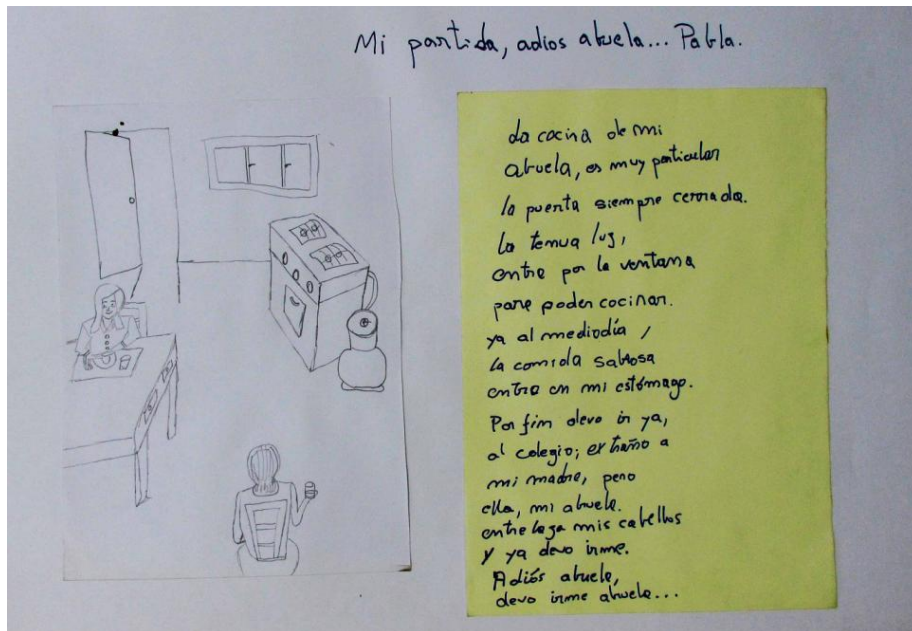 Mi partida, adios abuela... Pabla.
La cocina de mi
abuela, es muy particular
la puerta siempre cerrada.
la tenua luz,
entra por la ventana
para poder cocinar.
ya al mediodía,
la comida sabrosa
entra en mi estómago.
Por fin devo ir ya,
al colegio; extraño a
mi madre, pero
ella, mi abuela.
entrelaza mis cabellos
y ya devo irme.
Adiós abuela,
devo irme abuela...